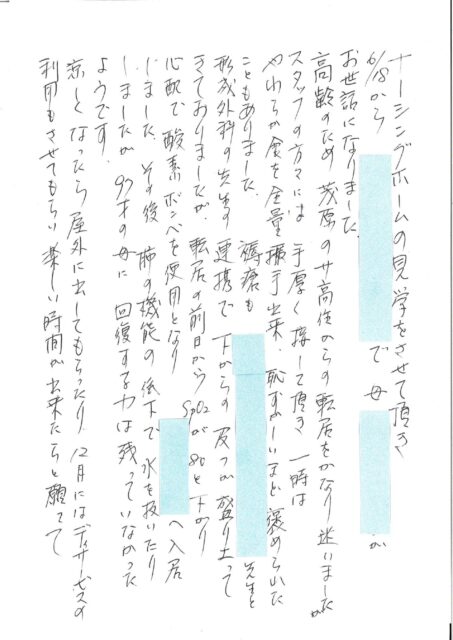 ナーシングホームの見学をさせて頂き
6/18から で 母 が
お世話になりました。
高齢のため茂原のサ高住からの転居をかなり迷いましたが
スタッフの方々には手厚く接して頂き 一時は
やわらか食を全量摂手出来、恥ずかしいほど褒められた
こともありました。褥瘡も 先生と
形成外科の先生の連携で下からの皮フが盛り上って
きておりましたが、転居の前日からSpO2が80と下がり
心配で酸素ボンベを使用となり へ入居
しました。その後 肺の機能の低下で水を抜いたり
しましたが 97才の母に回復する力は残っていなかった
ようです。
涼しくなったら屋外に出してもらったり、12月にはデイサービスの
利用もさせてもらい楽しい時間が出来たらと願ってて